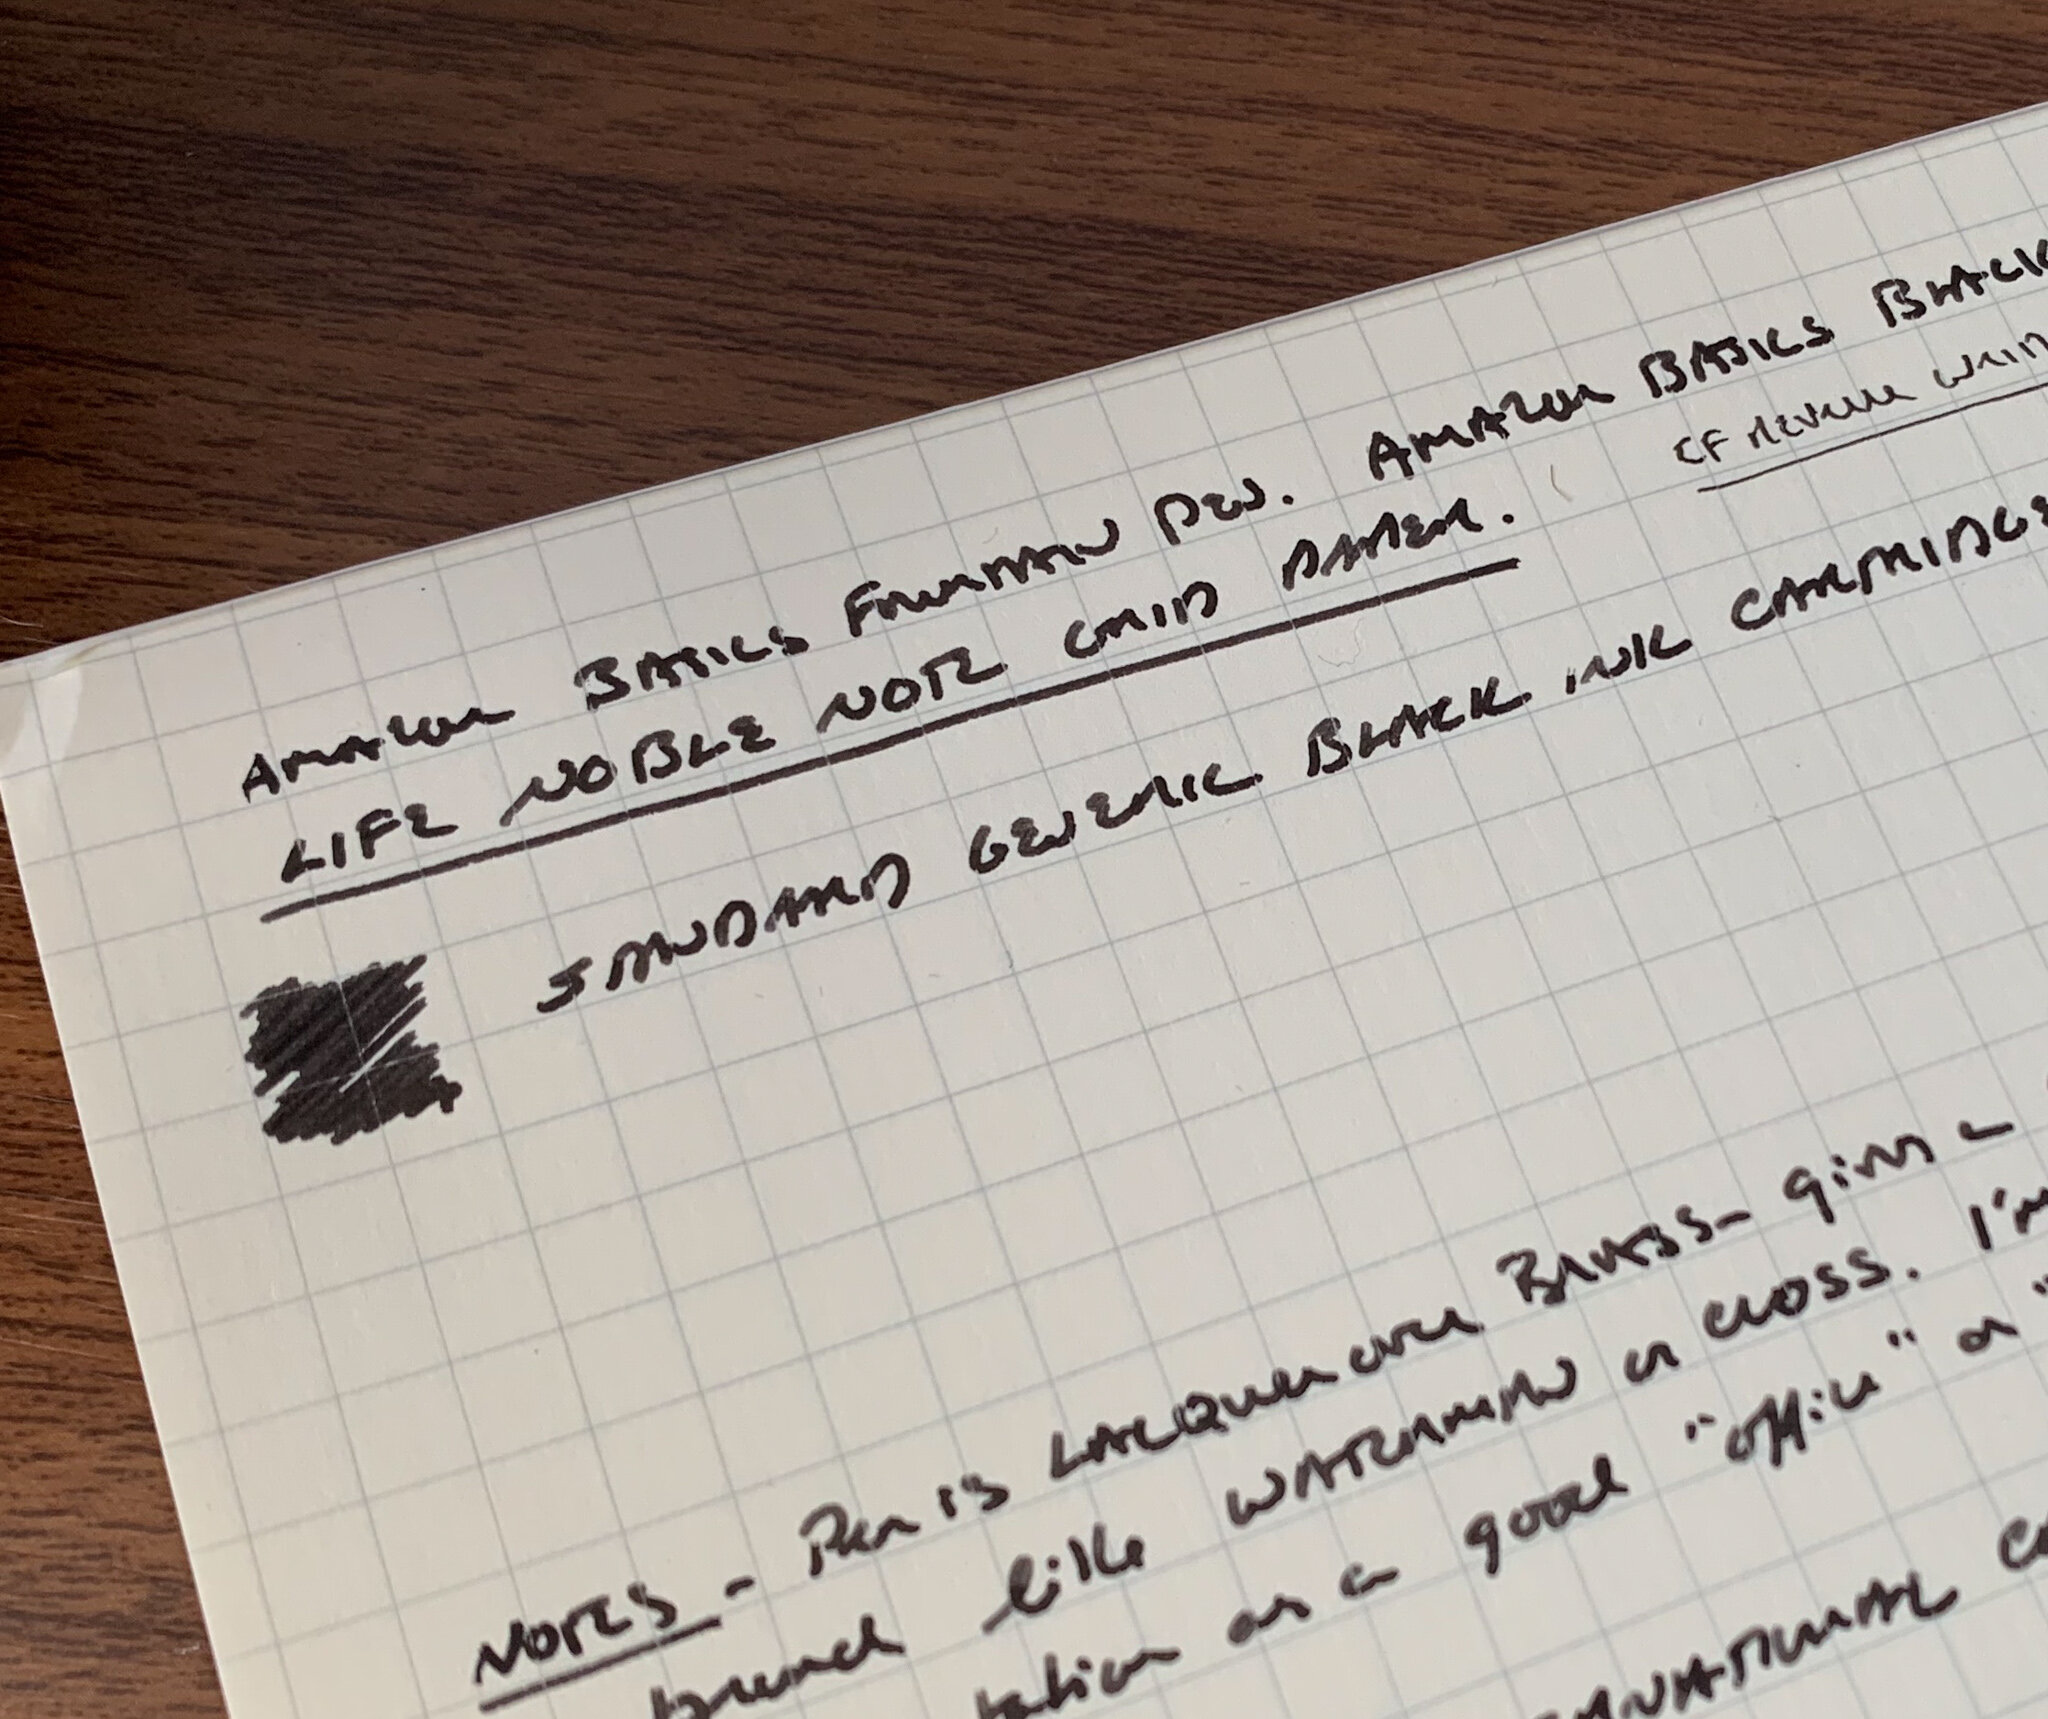 AMAZON BASICS FOUNTAIN PEN. AMAZON BASICS BLACK
LIFE NOBLE NOTE GRID PAPER.
CF REVERSE WRITIN
STANDARD GENERIC BLACK INK CARTRIDGE
NOTES - Pen is LACQUER over BRASS - given a
brand like WATERMAN or CROSS. I'm
tation as a good "office" or "
NATIONAL CO